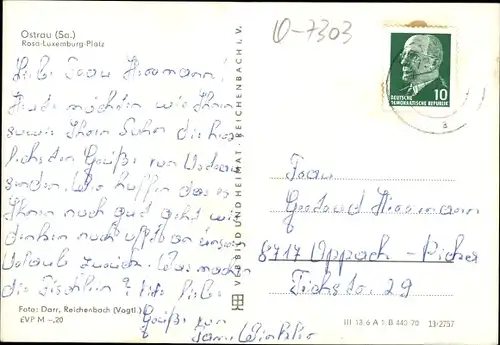 Ostrau (Sa.)
Rosa-Luxemburg-Platz
0-7303
10
DEUTSCHE
DEMOKRATISCHE REPUBLIK
Liebe Frau Hissmann!
Heute möchten wir Ihnen
sowie Ihrem Sohn die herz
lichsten Grüße von Ostrau
senden. Wir hoffen das es
Ihnen noch gut geht wir
denken noch oft an unsern
Urlaub zurück. Was machen
die Fischlein?
Grüße von
Fam. Winkler
Foto: Darr, Reichenbach (Vogtl.)
EVP M –,20
VERLAG BILD UND HEIMAT · REICHENBACH i. V.
Frau
Hissmann
8717 Oppach-Picka
Fichtestr. 29
III 18 6 A 1 B 440 70 13-2757